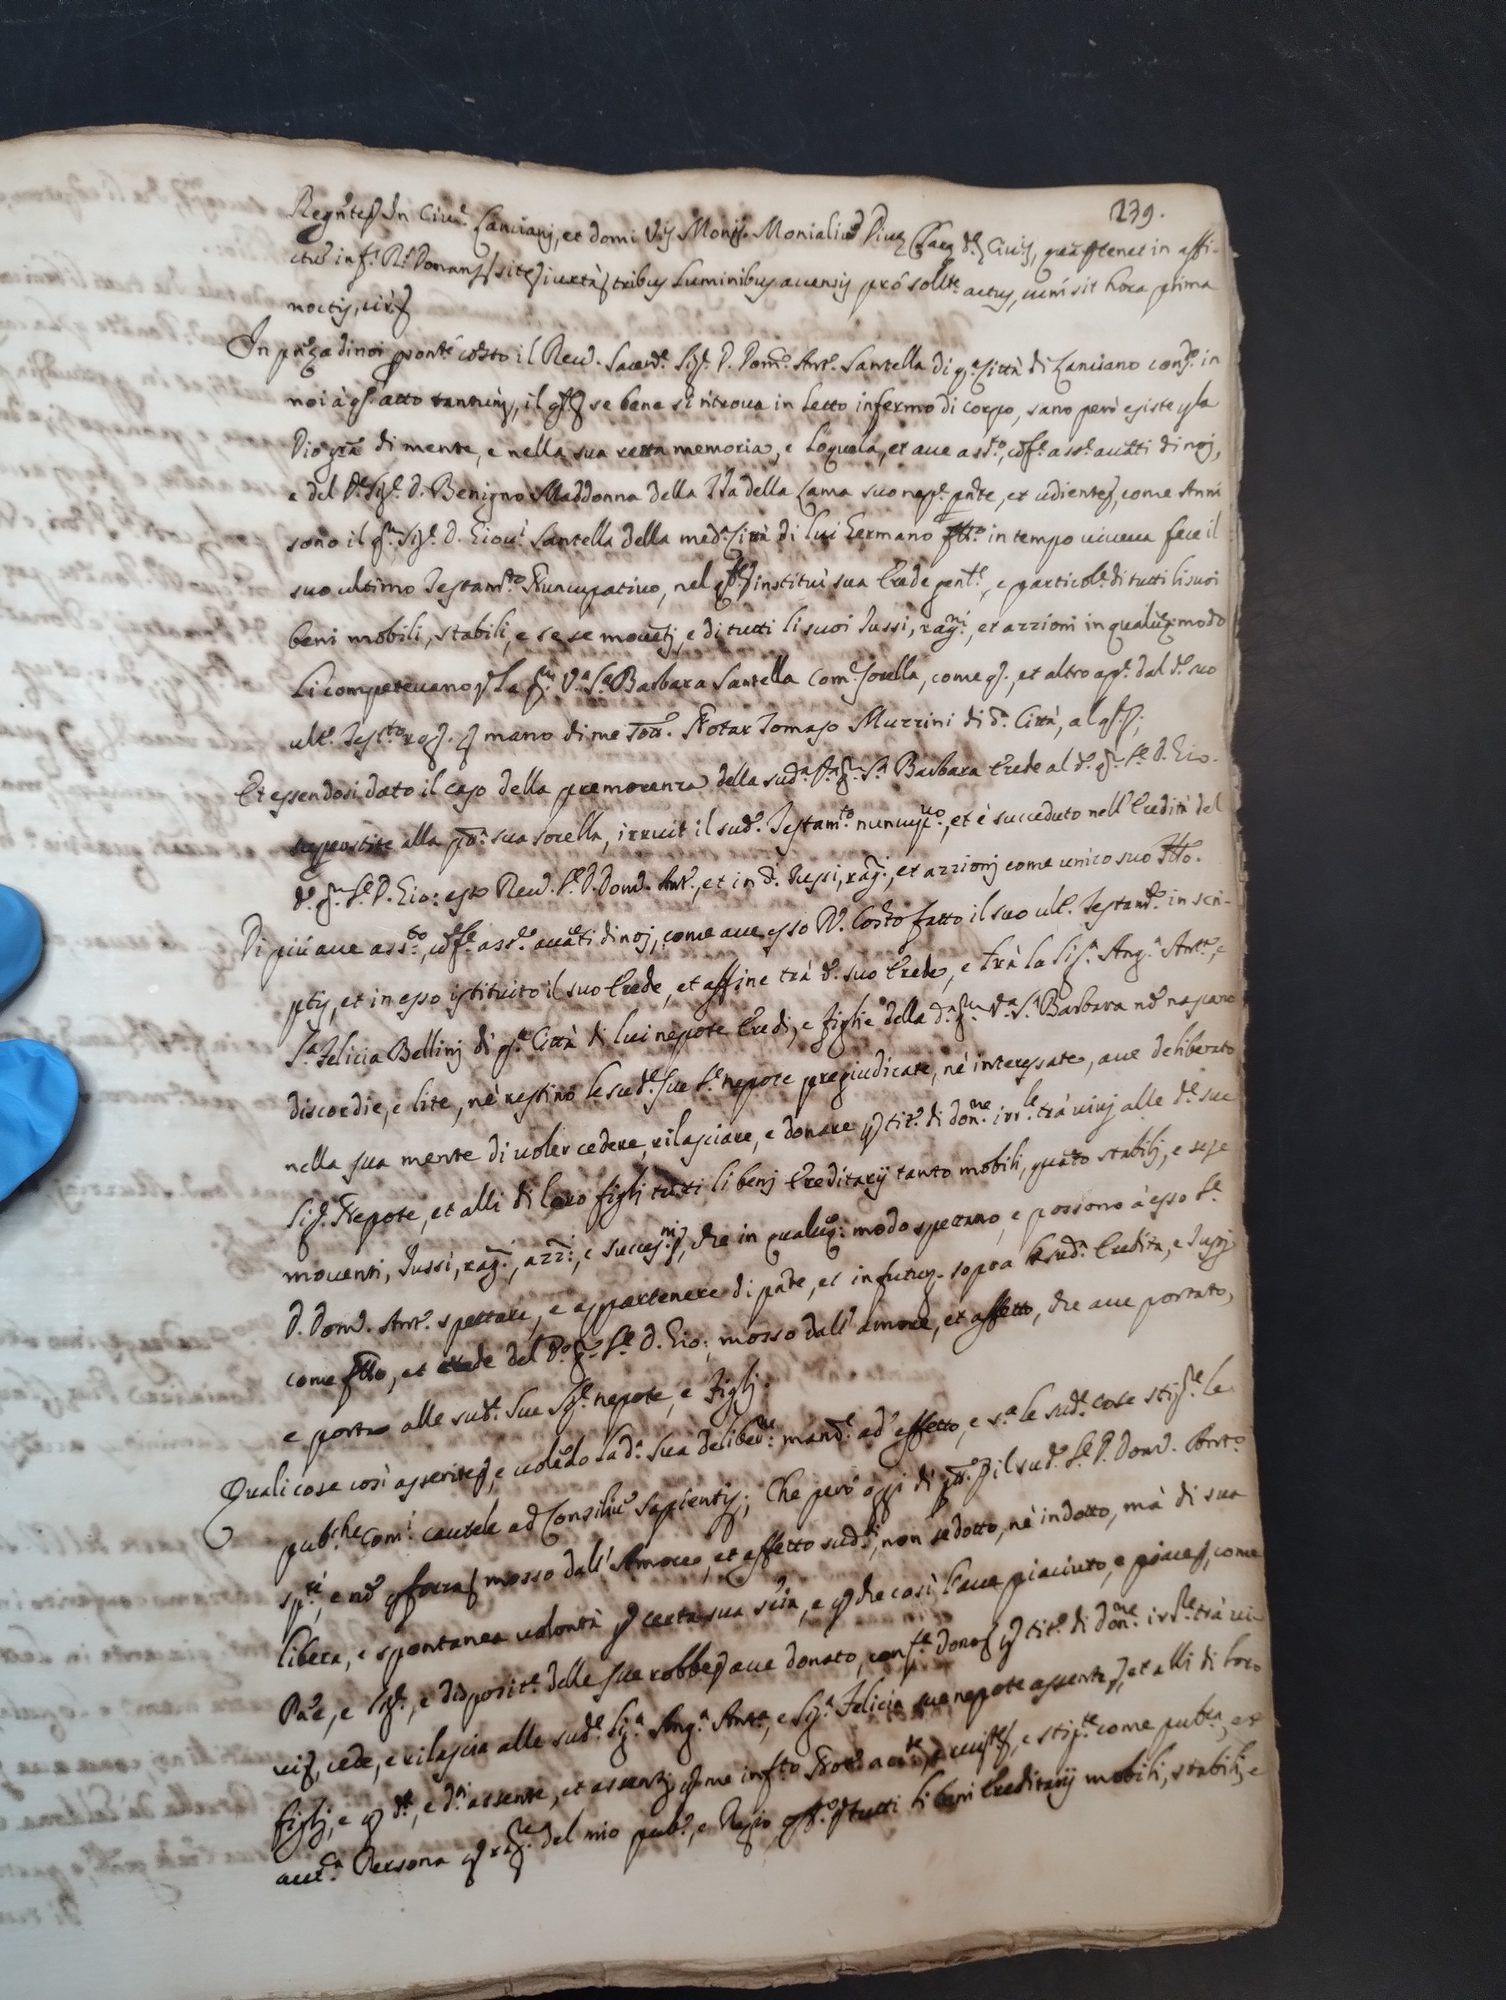 239.
Regn̄te In Civ.e Lanciani, et domi V. Monij. Monialiū Divæ Claræ d. Civ., quæ tenet in affi-
ctū inf. R. Donans sit iuxta tribus luminibus accensis prò sollte. actus, cum sit hora prima
noctis,
In pñza di noi gionte costto il Rev. Sacerd.e Sig.r D. Dom.co Ant.o Santella di q.a Città di Lanciano consⸯ. in
noi à q.o atto tantum, il q.le se bene si ritrova in letto infermo di corpo, sano però esiste p la
Dio grã di mente, e nella sua retta memoria, e loquela, et ave ass.to, ass.e avãti di noi,
e del d.o Sig.r D. Benigno Maddonna della Trã della Lama suo nep.e pñte, et udiente, come Anni
sono il q.m Sig.r D. Giov.i Santella della med.a Città di lui Germano fr̃o in tempo viveva fece il
suo ultimo Testam.to Nuncupativo, nel q.le instituì sua Erede gen.le, e particol.e di tutti li suoi
beni mobili, stabili, e se se movẽti, e di tutti li suoi Jussi, rag.ni, et azzioni in qualūq. modo
li competevano, la q.m V.a S.a Barbara Santella Com.e sorella, come q.o, et altro ap.e dal d.o suo
ult.o Test.to rog. p mano di me Notar Tomaso Muzzini di d.a Città, al q.
Et essendosi dato il caso della premorenza della sud.a q.m S.a Barbara Erede al d.o q.m S.r D. Gio.
superstite alla pd.a sua sorella, irruit il sud.o Testam.to nuncup.vo, et è succeduto nell'Eredità del
d.o q.m S.r D. Gio: esso Rev. S.r D. Dom.co Ant.o, et in d.i Jussi, rag.ni, et azzioni come unico suo fr̃o.
Di più ave ass.to, ass.e avãti di noi, come ave esso R. Costto fatto il suo ult.o Testam.to in scri-
ptis, et in esso istituito il suo Erede, et affine trà d.o suo Erede, e trà la Sig.a Ang.a Ant.a, e
S.a Felicia Bellini di q.a Città di lui nepote Eredi, e figlie della d.a q.m V.a S.a Barbara nō nascano
discordie, e lite, nè restino le sud.e sue S.e nepote pregiudicate, nè interessate, ave deliberato
nella sua mente di voler cedere, rilasciare, e donare p tit.o di don.ne irr.le trà vivi alle d.e sue
Sig.e Nepote, et alli di loro figli tutti li beni Ereditarij tanto mobili, quãto stabili, e se se
moventi, Jussi, rag.ni, azz.ni, e success.ni, che in qualūq. modo spettano, e possono à esso S.r
D. Dom.co Ant.o spettare, e appartenere di pñte, et in futur. sopra la sud.a Eredità, e Jussi
come fr̃o, et erede del d.o q.m S.r D. Gio: mosso dall'amore, et affetto, che ave portato,
e porta alle sud.e sue Sig.e nepote, e figli.
Quali cose così asserite, e volẽdo la d.a sua deliber.ne mand.e ad effetto, e s.a le sud.e cose stip.e le
pub.che com.i cautele ad Consiliū Sapientis; Che però oggi dì il sud.o S.r D. Dom.co Ant.o
sp.te, e nō p forza mosso dall'Amore, et affetto sud.i, non sedotto, nè indotto, mà di sua
libera, e spontanea volontà p certa sua sciã, e p che così l'have piaciuto, e piace, come
Pãe, e Sig.r, e disposit.e delle sue robbe ave donato, con q.o dona p tit.o di don.ne irr.le trà vi-
vi, cede, e rilascia alle sud.e Sig.a Ang.a Ant.a, e Sig.a Felicia sue nepote assente, et alli di loro
figli, e p d.e, e d.i assente, et assenti p me inf.to Not.o acc.te, e stip.te come pub.ca, et
aut.a Persona p rag.ne del mio pub.o, e Regio off.o tutti li beni Ereditarij mobili, stabili, e